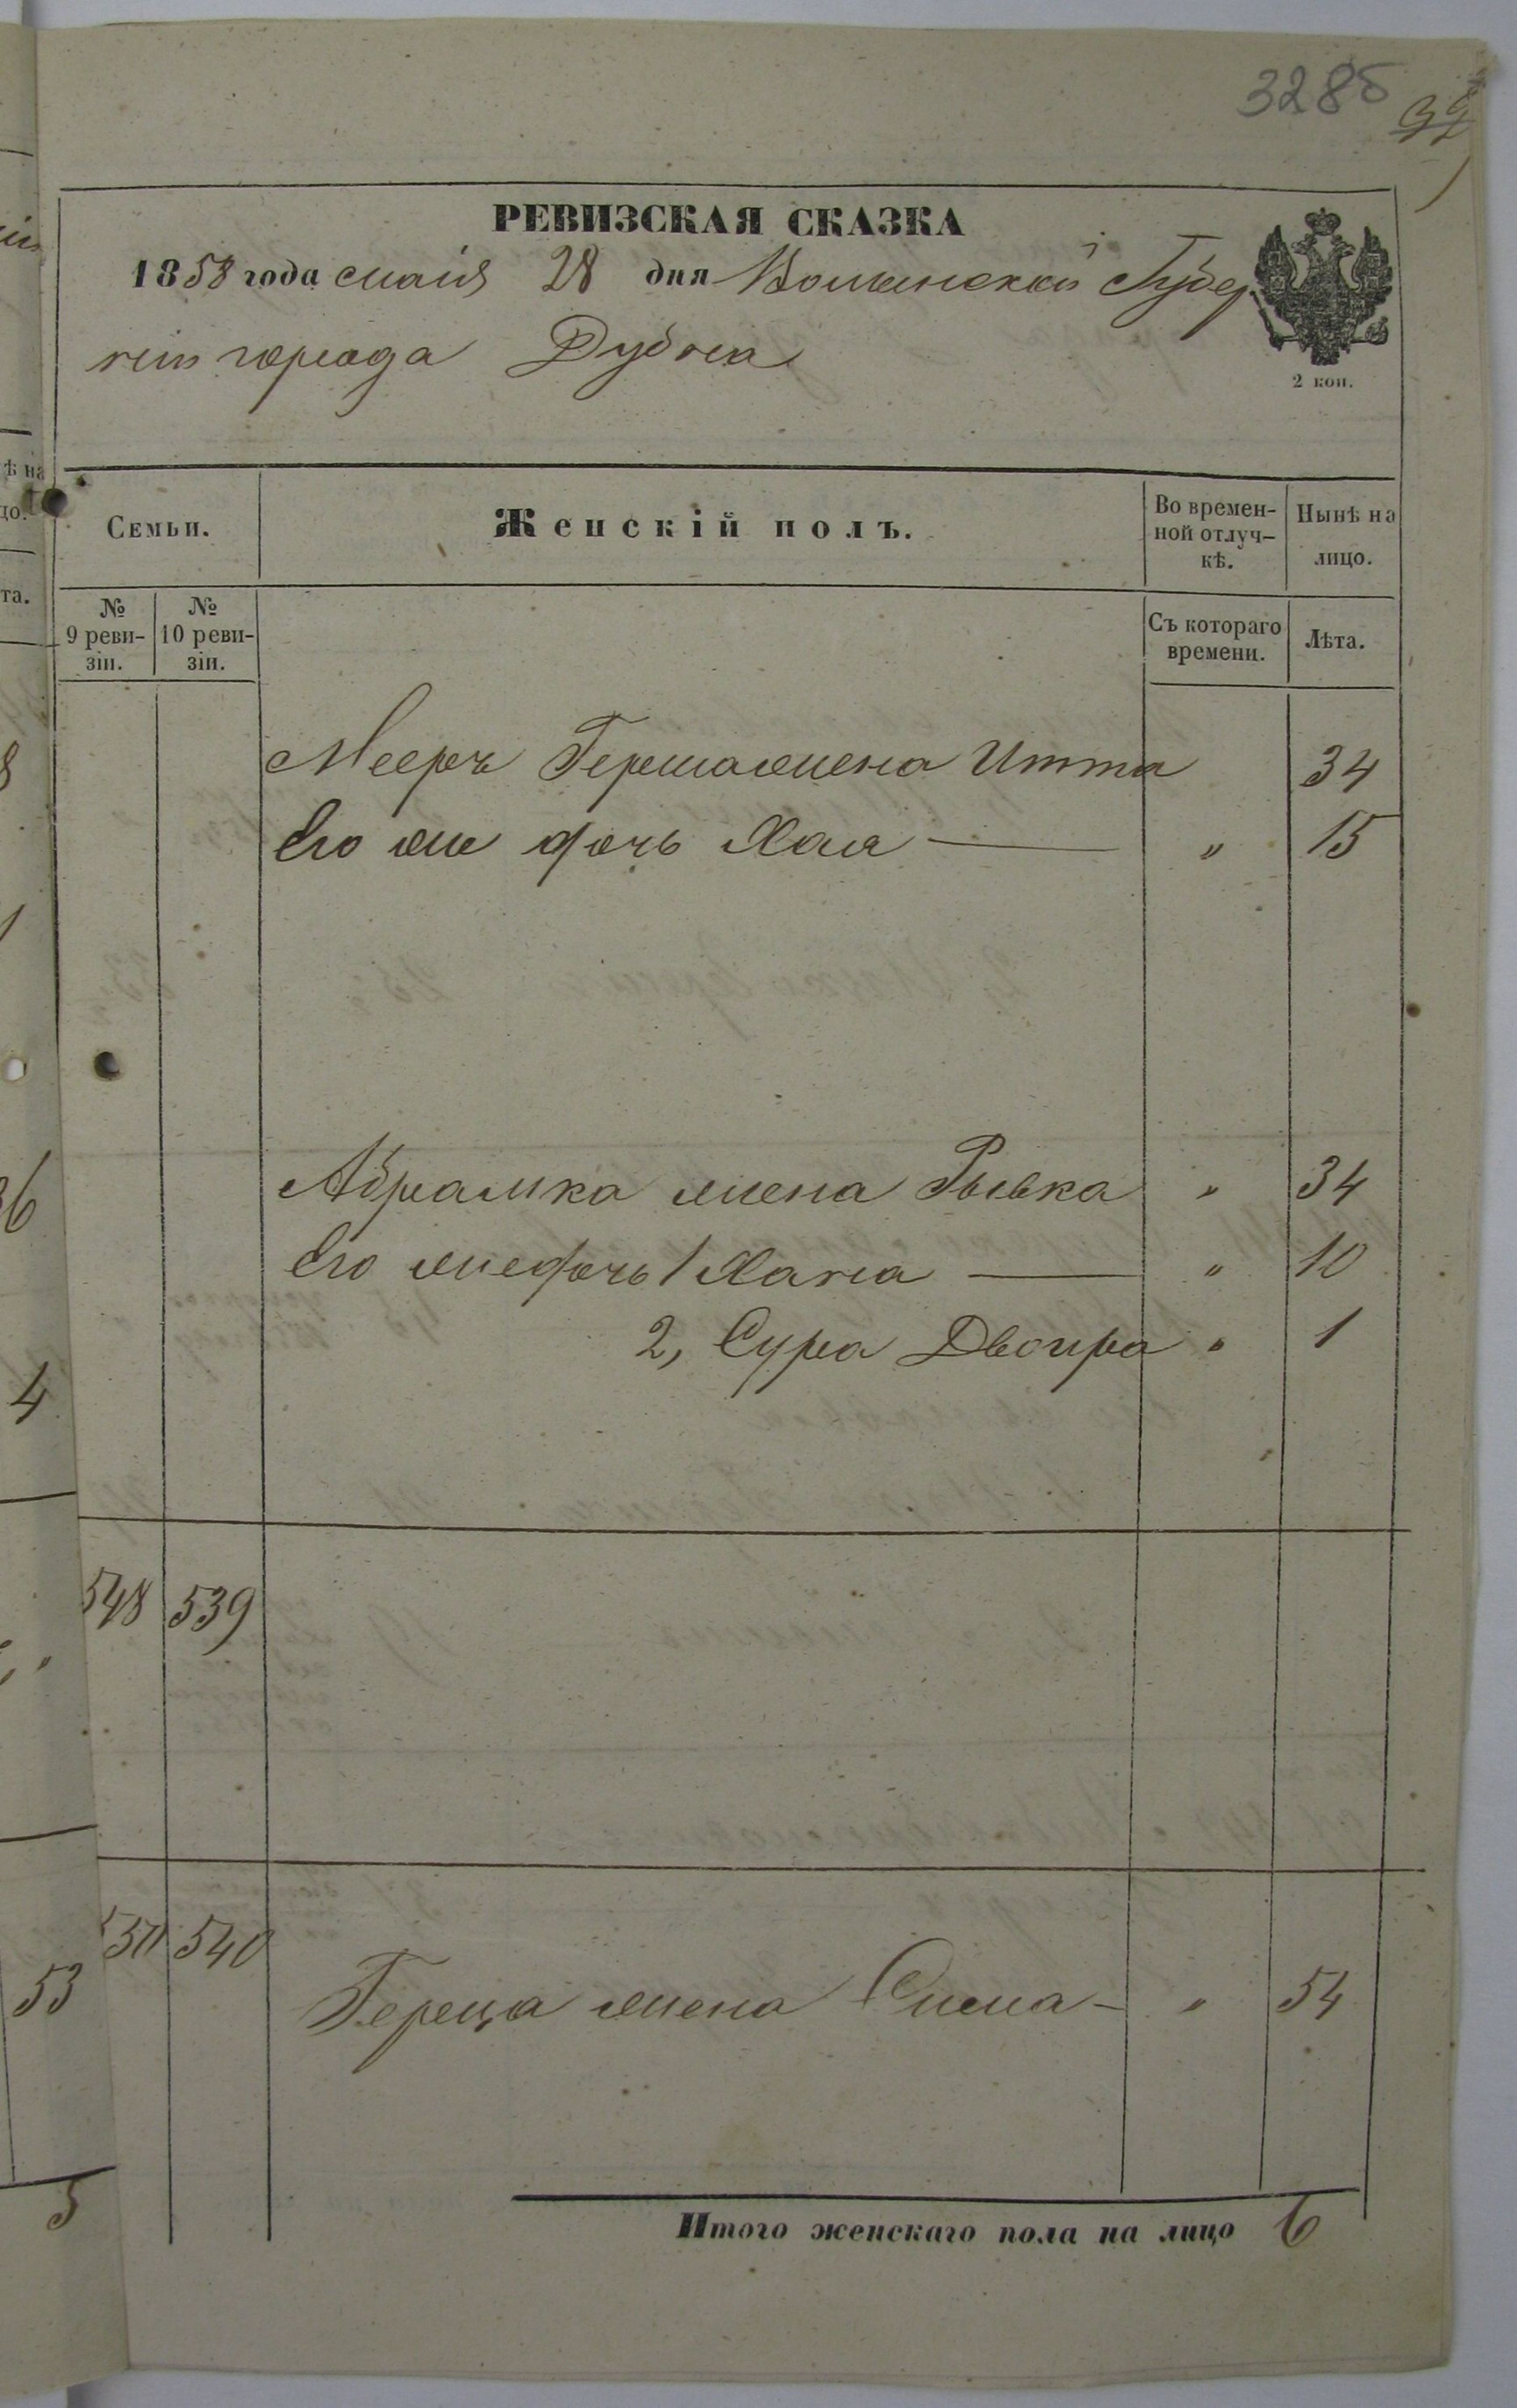 328б
39
РЕВИЗСКАЯ СКАЗКА
1858 года маія 28 дня Волынской Губер
ніи города Дубна
2 коп.
Семьи.
Женскій полъ.
Во времен-
ной отлуч-
кѣ.
Нынѣ на
лицо.
№
9 реви-
зіи.
№
10 реви-
зіи.
Съ котораго
времени.
Лѣта.
Мееръ Герша жена Итта 34
Его же дочь Хая — " 15
Абрамка жена Рывка " 34
Его же дочь 1 Хана — " 10
2, Сура Двоира " 1
548 539
540
Герца жена Сима — " 54
Итого женскаго пола на лицо 6